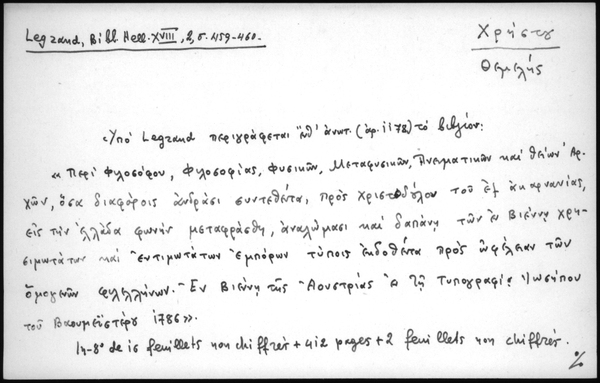 Legrand, Bibl. Hell. XVIII, 2, σ. 459-460.
Χρήστου
Θεμελής
«Ὑπό Legrand περιγράφεται ἔνθ' ἀνωτ. (ἀρ. 1178) τό βιβλίον:
« Περί Φιλοσόφου, Φιλοσοφίας, Φυσικῶν, Μεταφυσικῶν, Πνευματικῶν καί θείων Ἀρ-
χῶν, ὅσα διαφόροις ἀνδράσι συντεθέντα, πρός Χριστοδούλου τοῦ ἐξ ἀκαρνανίας,
εἰς τήν ἑλλάδα φωνήν μεταφράσθη, ἀναλώμασι καί δαπάνη τῶν ἐν Βιέννη χρη-
σιμωτάτων καί ἐντιμωτάτων ἐμπόρων τύποις ἐκδοθέντα πρός ὠφέλειαν τῶν
ὁμογενῶν φιλελλήνων. Ἐν Βιέννη τῆς Ἀουστρίας ἐν τῇ Τυπογραφίᾳ Ἰωσήπου
τοῦ Βαουμεϊστέρου 1786».
In-8° de 16 feuillets non chiffrés + 412 pages + 2 feuillets non chiffrés.
%